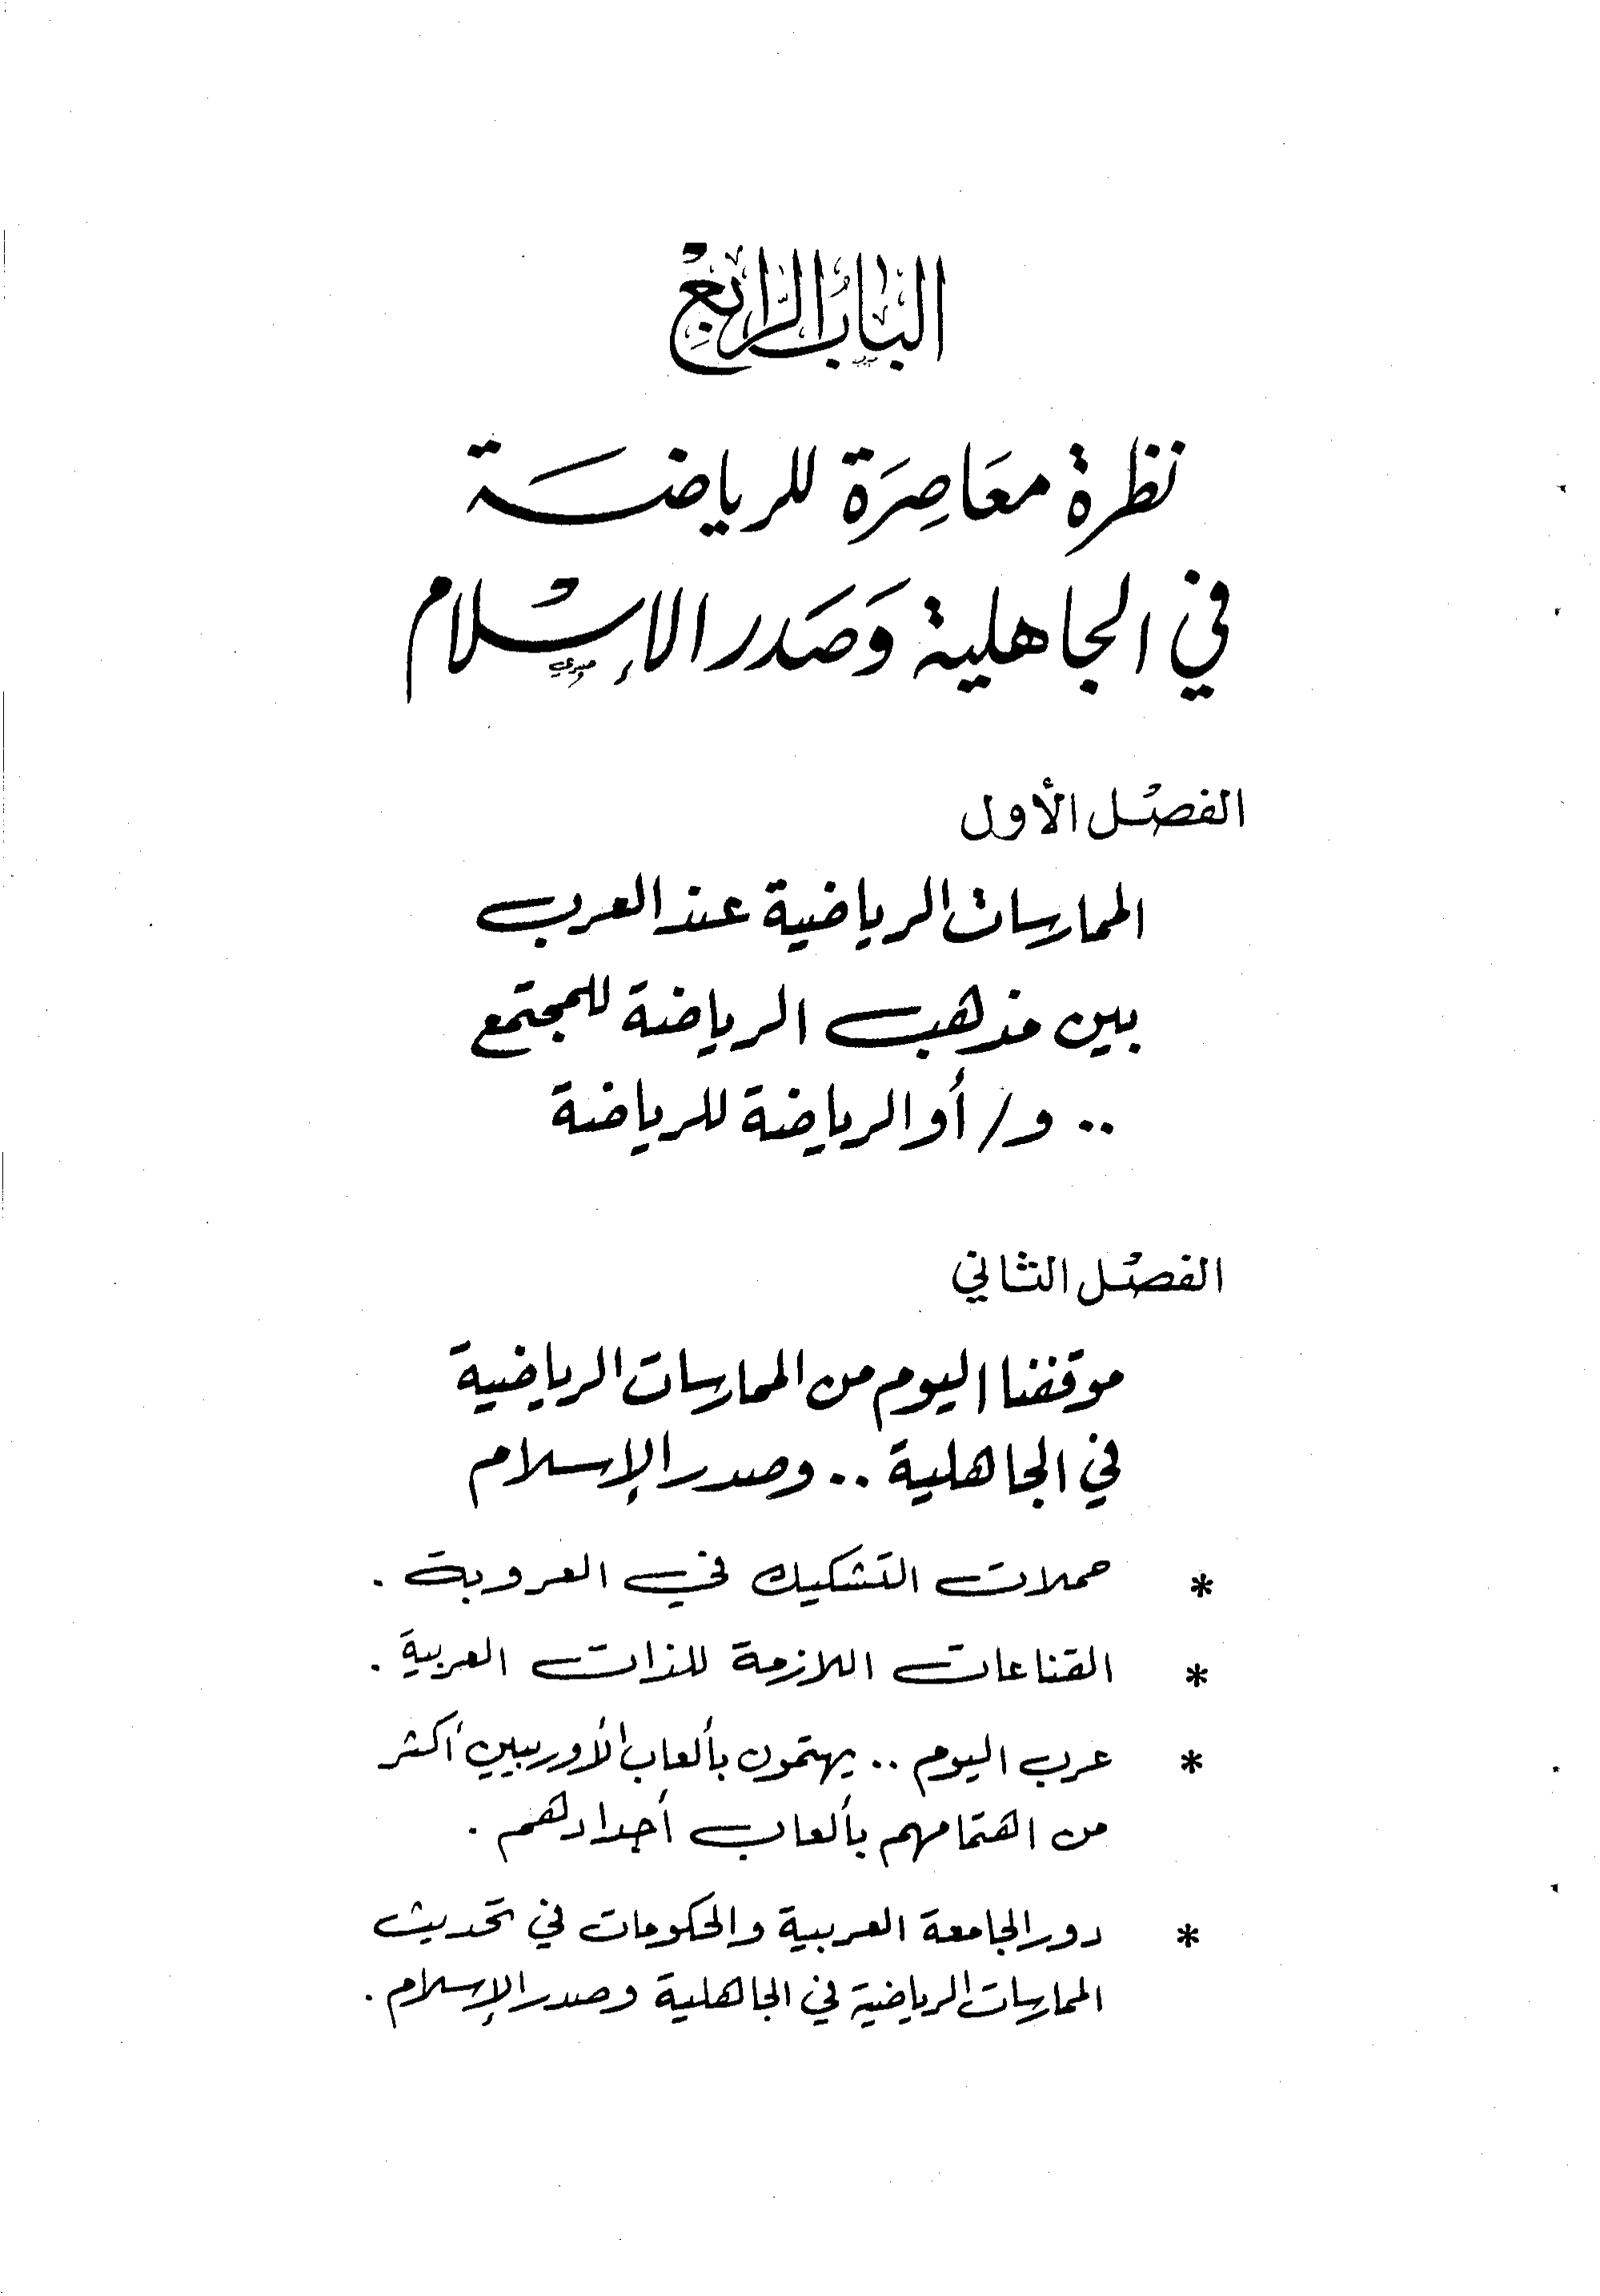 الباب الرابع
نظرة معَاصِرَة للرياضَة
في الجاهلية وَصَدر الإسْلام
الفصْل الأول
الممارسات الرياضية عند العرب
بين مذهب الرياضة للمجتمع
.. و/أو الرياضة للرياضة
الفصْل الثاني
موقفنا اليوم من الممارسات الرياضية
في الجاهلية .. وصدر الإسلام
* حملات التشكيك في العروبة .
* القناعات اللازمة للذات العربية .
* عرب اليوم .. يهتمون بألعاب الأوربيين أكثر
من اهتمامهم بألعاب أجدادهم .
* دور الجامعة العربية والحكومات في تحديث
الممارسات الرياضية في الجاهلية وصدر الإسلام .